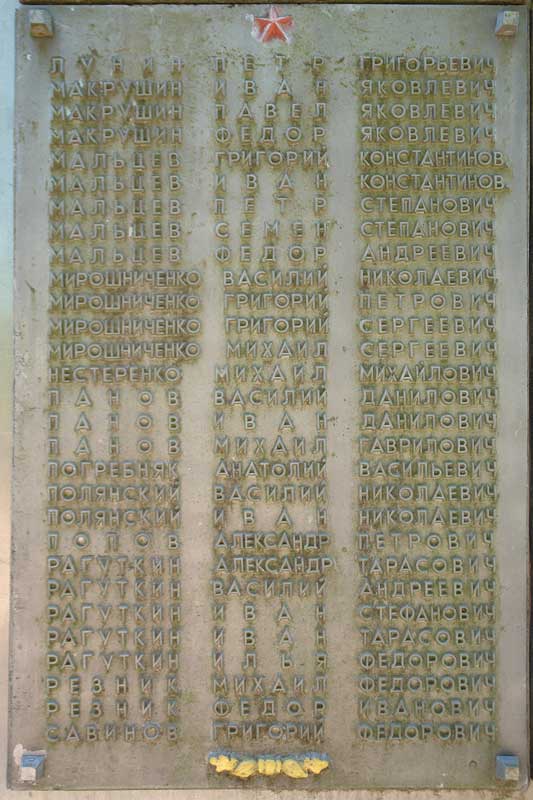 ЛУНИН ПЕТР ГРИГОРЬЕВИЧ
МАКРУШИН ИВАН ЯКОВЛЕВИЧ
МАКРУШИН ПАВЕЛ ЯКОВЛЕВИЧ
МАКРУШИН ФЕДОР ЯКОВЛЕВИЧ
МАЛЬЦЕВ ГРИГОРИЙ КОНСТАНТИНОВ
МАЛЬЦЕВ ИВАН КОНСТАНТИНОВ.
МАЛЬЦЕВ ПЕТР СТЕПАНОВИЧ
МАЛЬЦЕВ СЕМЕН СТЕПАНОВИЧ
МАЛЬЦЕВ ФЕДОР АНДРЕЕВИЧ
МИРОШНИЧЕНКО ВАСИЛИЙ НИКОЛАЕВИЧ
МИРОШНИЧЕНКО ГРИГОРИЙ ПЕТРОВИЧ
МИРОШНИЧЕНКО ГРИГОРИЙ СЕРГЕЕВИЧ
МИРОШНИЧЕНКО МИХАИЛ СЕРГЕЕВИЧ
НЕСТЕРЕНКО МИХАИЛ МИХАЙЛОВИЧ
ПАНОВ ВАСИЛИЙ ДАНИЛОВИЧ
ПАНОВ ИВАН ДАНИЛОВИЧ
ПАНОВ МИХАИЛ ГАВРИЛОВИЧ
ПОГРЕБНЯК АНАТОЛИЙ ВАСИЛЬЕВИЧ
ПОЛЯНСКИЙ ВАСИЛИЙ НИКОЛАЕВИЧ
ПОЛЯНСКИЙ ИВАН НИКОЛАЕВИЧ
ПОПОВ АЛЕКСАНДР ПЕТРОВИЧ
РАГУТКИН АЛЕКСАНДР ТАРАСОВИЧ
РАГУТКИН ВАСИЛИЙ АНДРЕЕВИЧ
РАГУТКИН ИВАН СТЕФАНОВИЧ
РАГУТКИН ИВАН ТАРАСОВИЧ
РАГУТКИН ИЛЬЯ ФЕДОРОВИЧ
РЕЗНИК МИХАИЛ ФЕДОРОВИЧ
РЕЗНИК ФЕДОР ИВАНОВИЧ
САВИНОВ ГРИГОРИЙ ФЕДОРОВИЧ